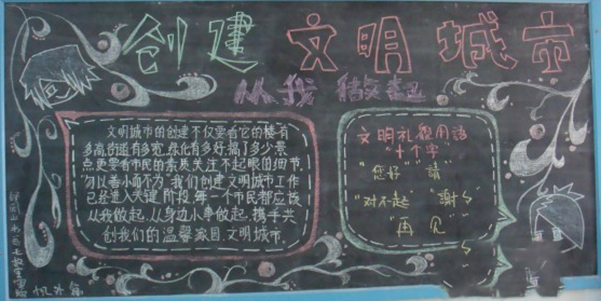 创建 文明城市
从我做起
文明城市的创建不仅要看它的楼有
多高,街道有多宽,绿化有多好,搞了多少景
点,更要看市民的素质,关注不起眼的细节,
勿以善小而不为,我们创建文明城市工作
已经进入关键阶段,每一个市民都应该
从我做起,从身边小事做起,携手共
创我们的温馨家园,文明城市。
文明礼貌用语
"十个字"
"您好" "請"
"对不起" "謝謝"
"再见"